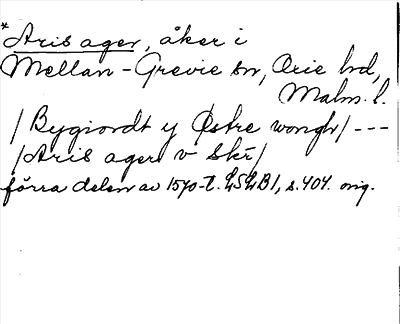 *Aris ager, åker i
Mellan-Grevie sn, Oxie hd,
Malm. l.
/Bygiordt y Østre wongh/ ---
/Aris ager v Skr/
förra delen av 1570-t. LSLB1, s. 404. orig.